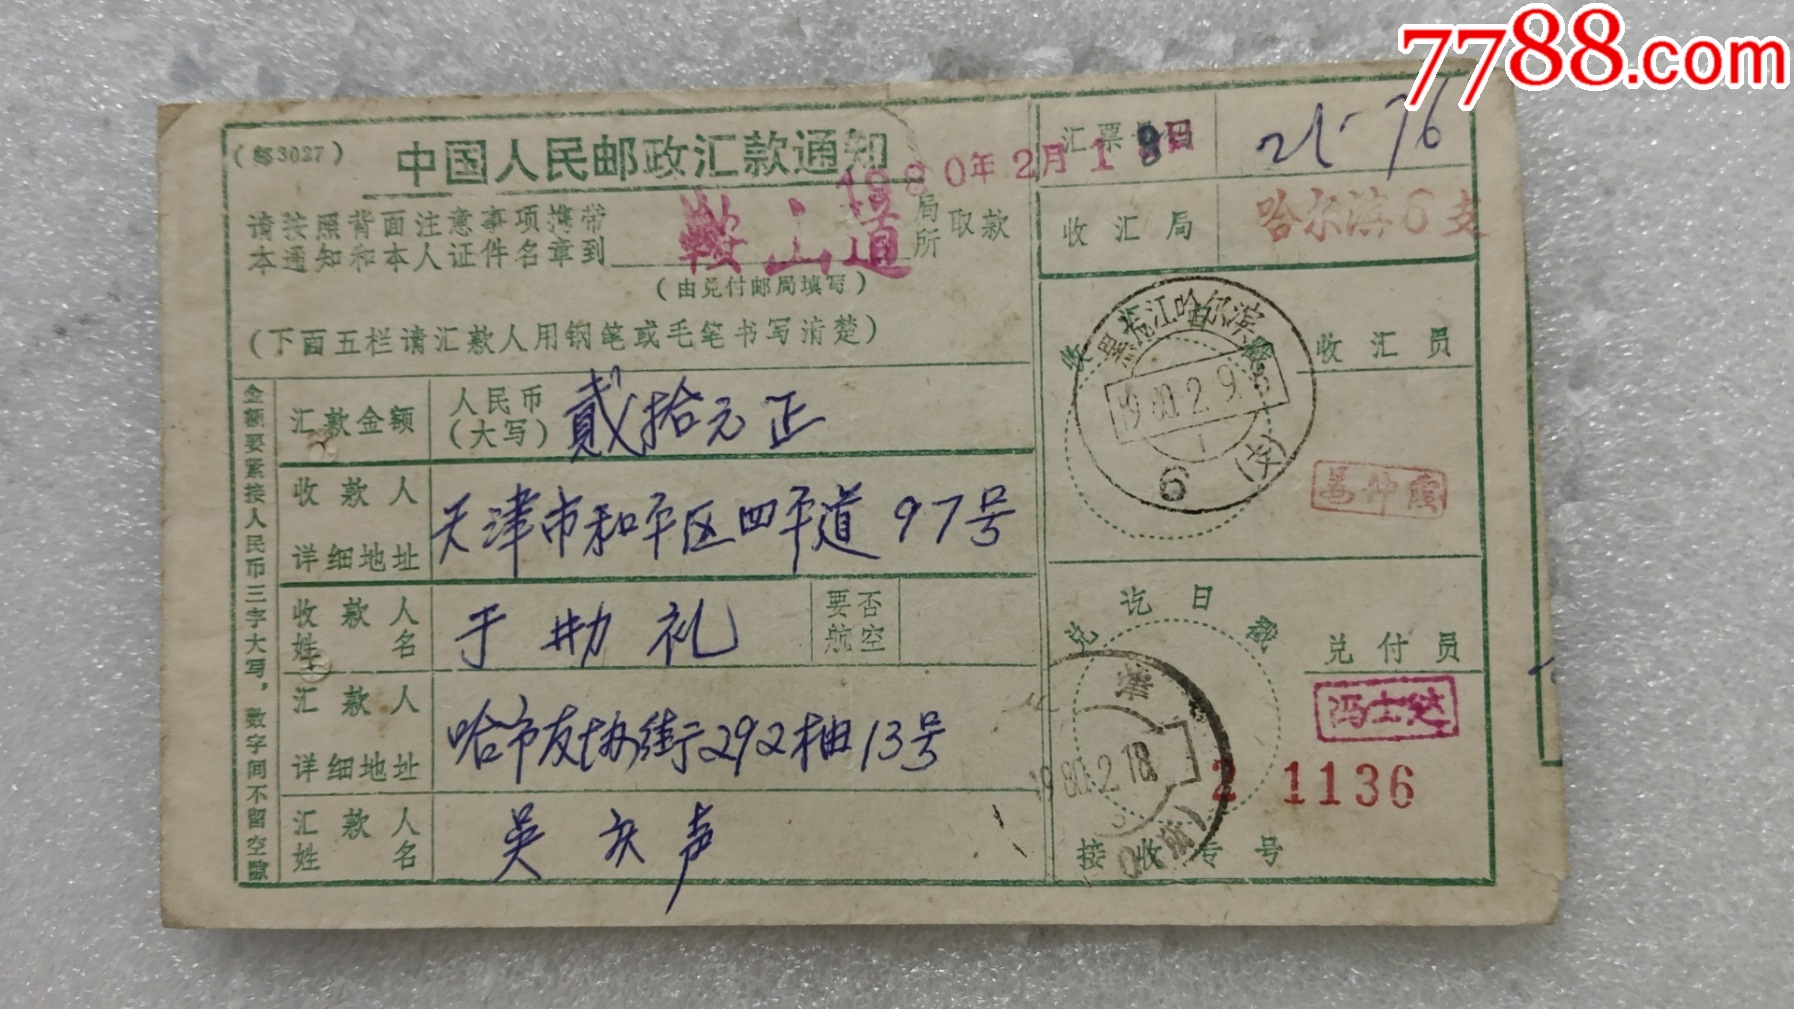 7788.com
(邮3027)
中国人民邮政汇款通知
1980年2月1 日
请按照背面注意事项携带
本通知和本人证件名章到 鞍山道 局所 取款
(由兑付邮局填写)
(下面五栏请汇款人用钢笔或毛笔书写清楚)
金额要紧接人民币三字大写，数字间不留空隙
汇款金额 人民币(大写) 贰拾元正
收款人详细地址 天津市和平区四平道97号
收款人姓名 于 礼 要否航空
汇款人详细地址 哈市友协街292 13号
汇款人姓名 吴 声
汇票
76
收汇局 哈尔滨6支
收 日 戳
黑龙江哈尔滨
1980.2.9
6 (支)
收汇员
姜仲霞
兑讫日戳
津
1980.2.18
兑付员
冯士
2 1136
接收专号